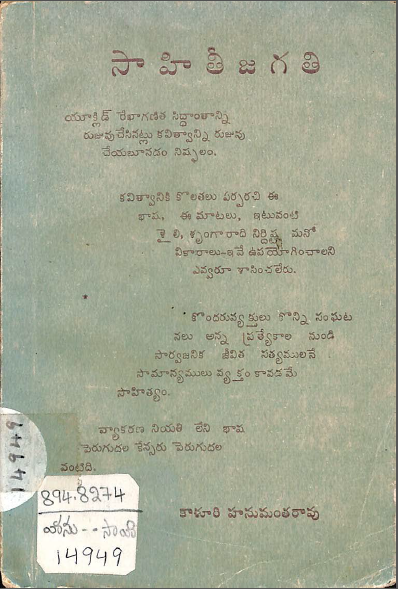 సాహితీజగతి
యూక్లిడ్ రేఖాగణిత సిద్ధాంతాన్ని
రుజువుచేసినట్లు కవిత్వాన్ని రుజువు
చేయబూనడం నిష్ఫలం.
కవిత్వానికి కొలతలు ఏర్పరచి ఈ
భాష, ఈ మాటలు, ఇటువంటి
శైలి, శృంగారాది నిర్దిష్ట మనో
వికారాలు-ఇవే ఉపయోగించాలని
ఎవ్వరూ శాసించలేరు.
కొందరువ్యక్తులు కొన్ని సంఘట
నలు అన్న ప్రత్యేకాల నుండి
సార్వజనిక జీవిత సత్యములనే
సామాన్యములు వ్యక్తం కావడమే
సాహిత్యం.
వ్యాకరణ నియతి లేని భాష
పెరుగుదల కేన్సరు పెరుగుదల
వంటిది.
14949
894.8274
హను--సాహి
14949
కాళూరి హనుమంతరావు